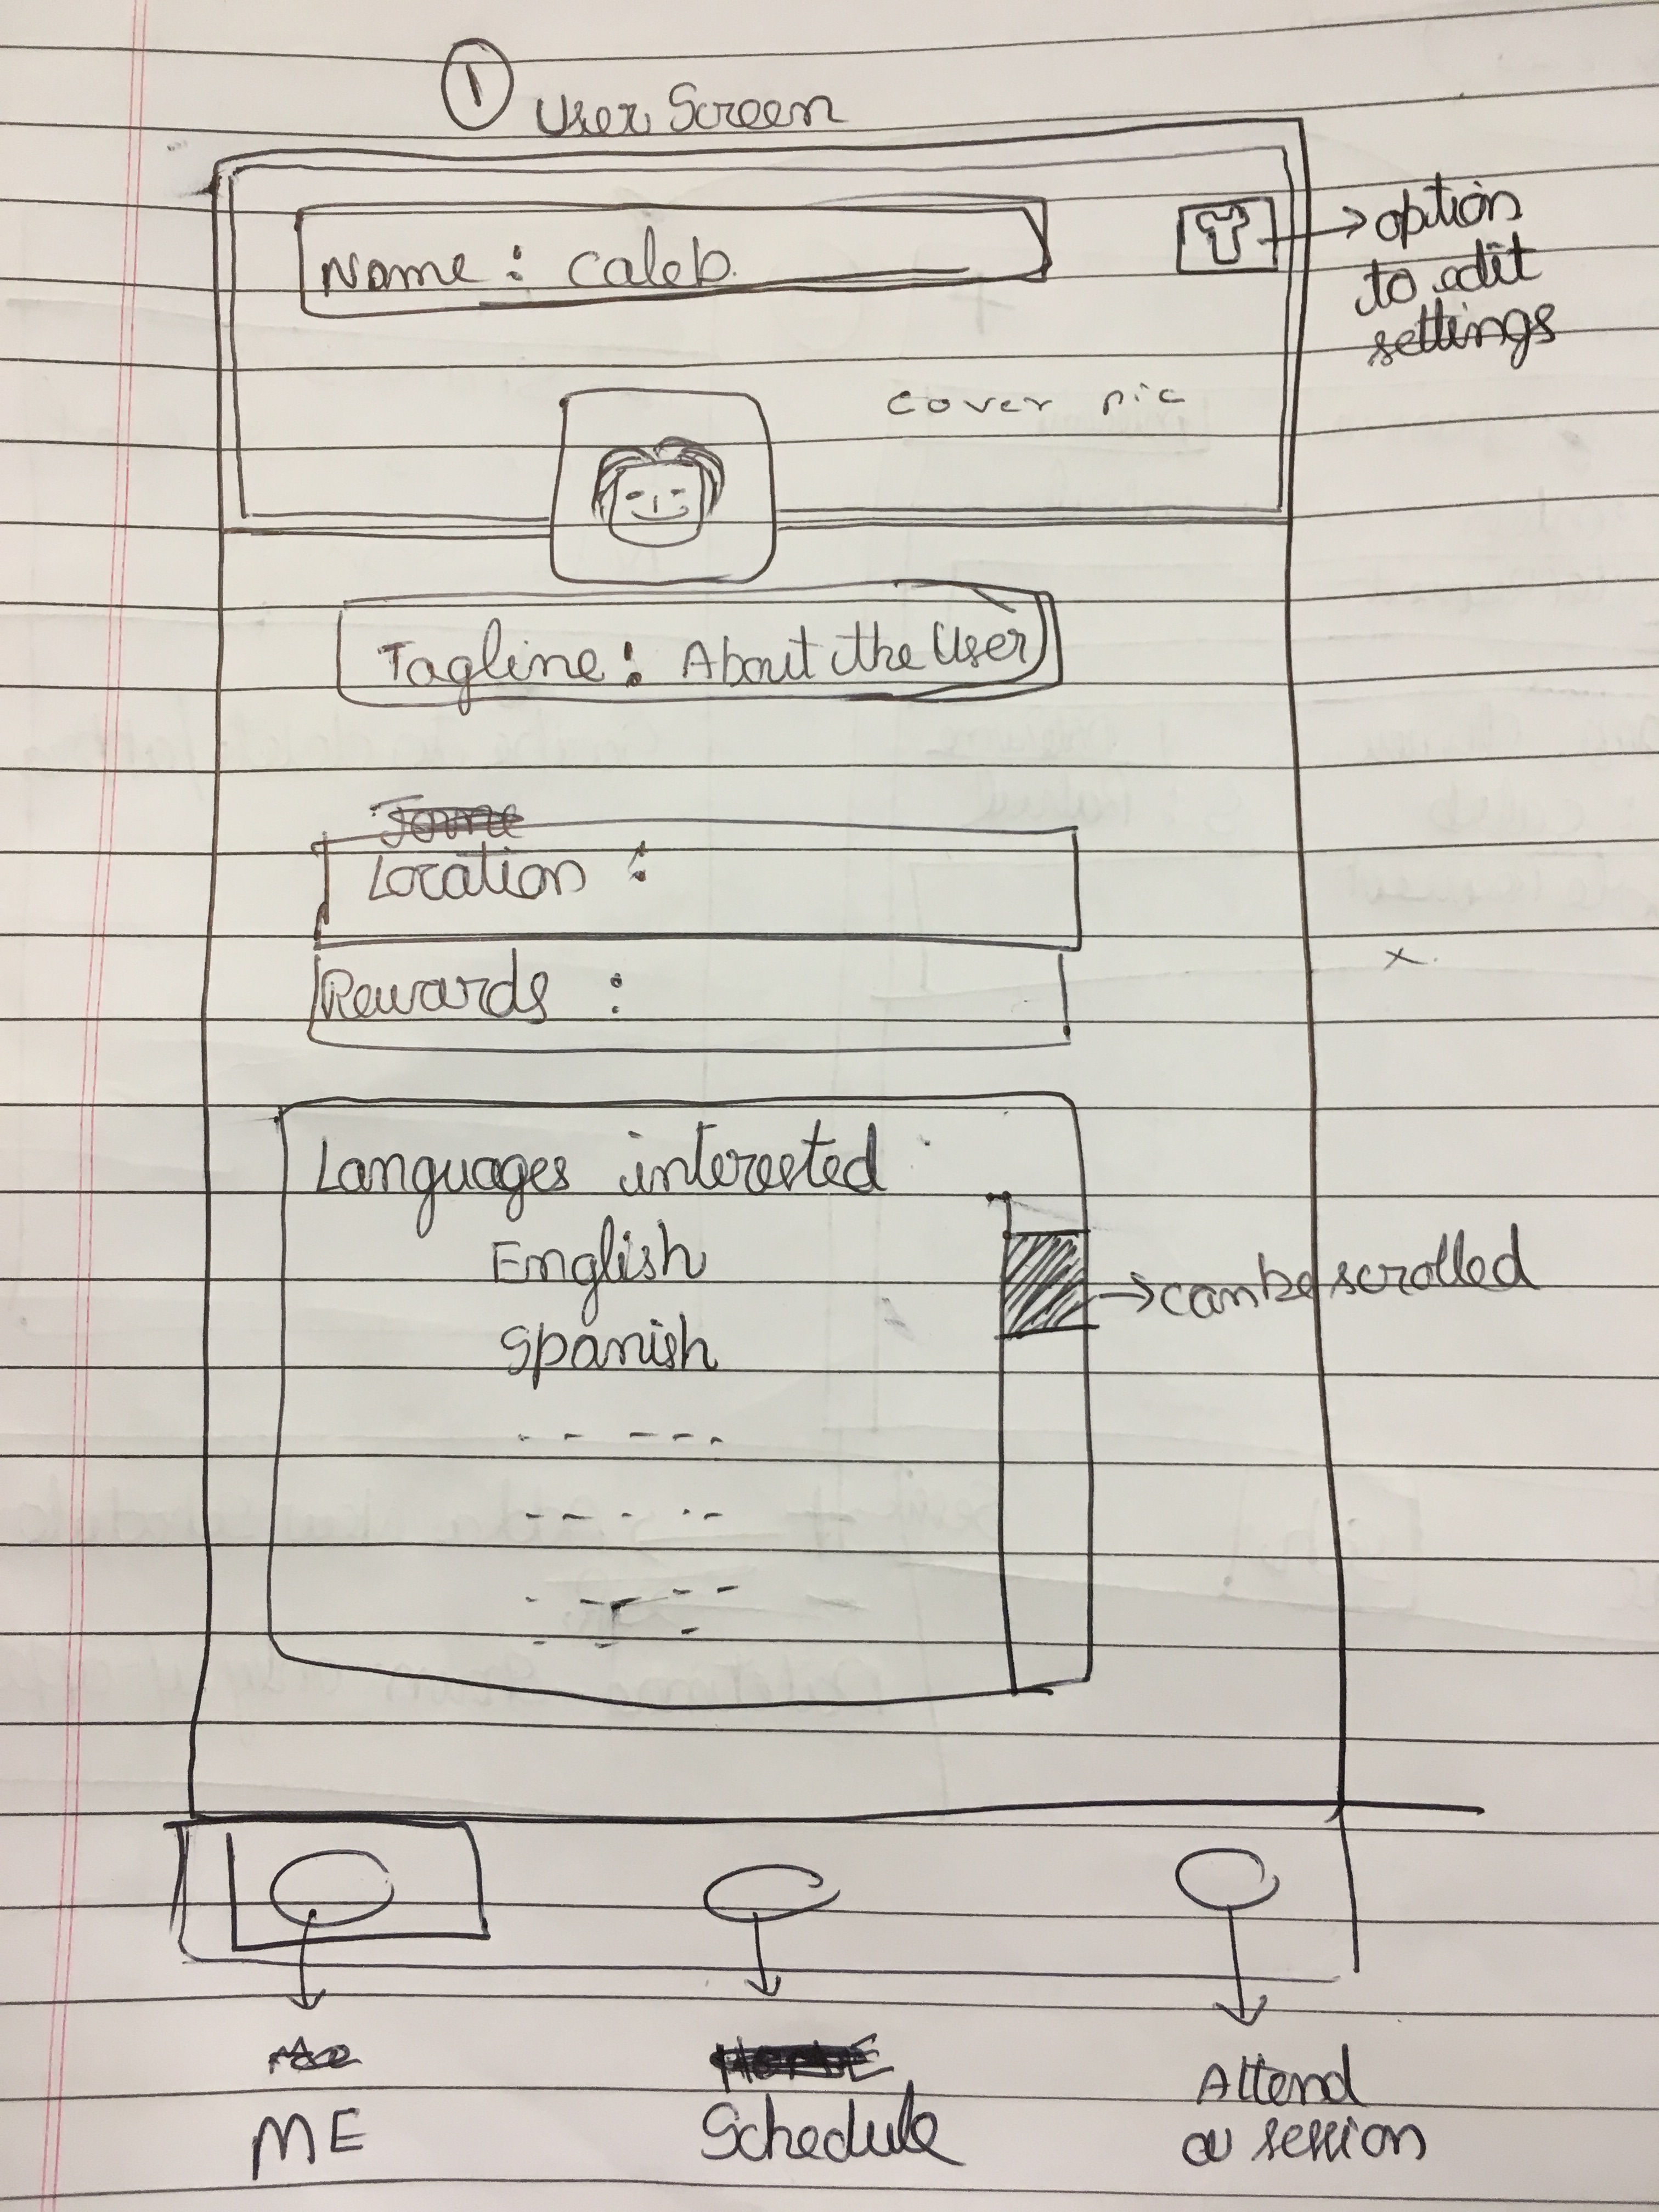 1
User Screen
Name : Caleb
option
to edit
settings
cover pic
Tagline : About the User
Location :
Rewards :
Languages interested
English
Spanish
can be scrolled
ME
Schedule
Attend
a session